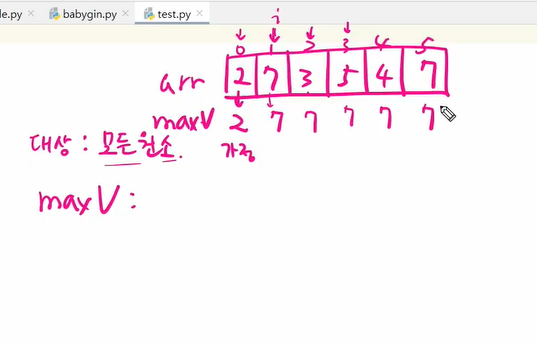 le.py × babygin.py × test.py ×
i
0 1 2 3 4 5
arr 2 7 3 5 4 7
maxV 2 7 7 7 7 7
대상 : 모든 원소. 가정
maxV :